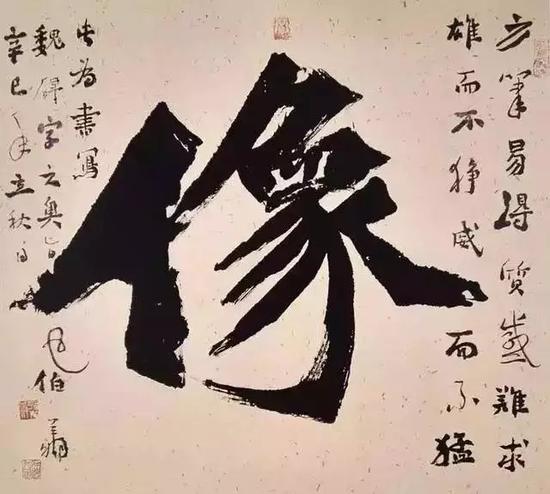 方筆易得質感難求
雄而不猙威而不猛
像
此為書寫
魏碑字之奧旨
辛巳年立秋日
伯